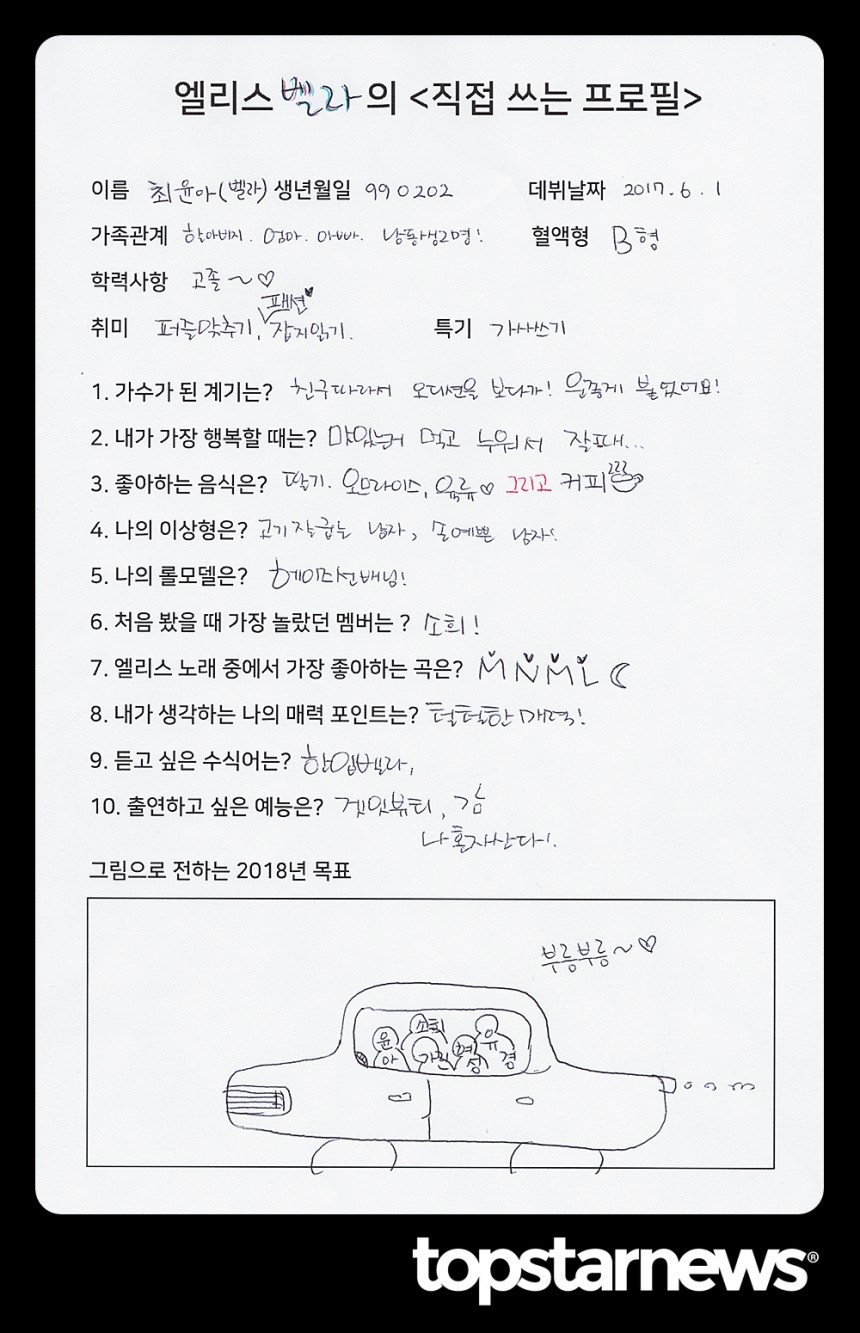 엘리스 벨라의 <직접 쓰는 프로필>
이름 최윤아(벨라) 생년월일 990202 데뷔날짜 2017.6.1
가족관계 할아버지. 엄마. 아빠. 남동생2명! 혈액형 B형
학력사항 고졸~♡
패션♥
취미 퍼즐맞추기, 잡지읽기. 특기 가사쓰기
1. 가수가 된 계기는? 친구따라서 오디션을 보다가! 운좋게 붙었어요!
2. 내가 가장 행복할 때는? 맛있는거 먹고 누워서 잘때...
3. 좋아하는 음식은? 딸기. 오므라이스, 육류♡ 그리고 커피
4. 나의 이상형은? 고기 잘굽는 남자, 손예쁜 남자!
5. 나의 롤모델은? 헤이즈선배님!
6. 처음 봤을 때 가장 놀랐던 멤버는 ? 소희!
7. 엘리스 노래 중에서 가장 좋아하는 곡은? MNML
8. 내가 생각하는 나의 매력 포인트는? 털털한 매력!
9. 듣고 싶은 수식어는? 핫업벨라,
10. 출연하고 싶은 예능은? 겟잇뷰티,
나혼자산다!.
그림으로 전하는 2018년 목표
부릉부릉~♡
윤아 소희 가린 혜성 유경
topstarnews®